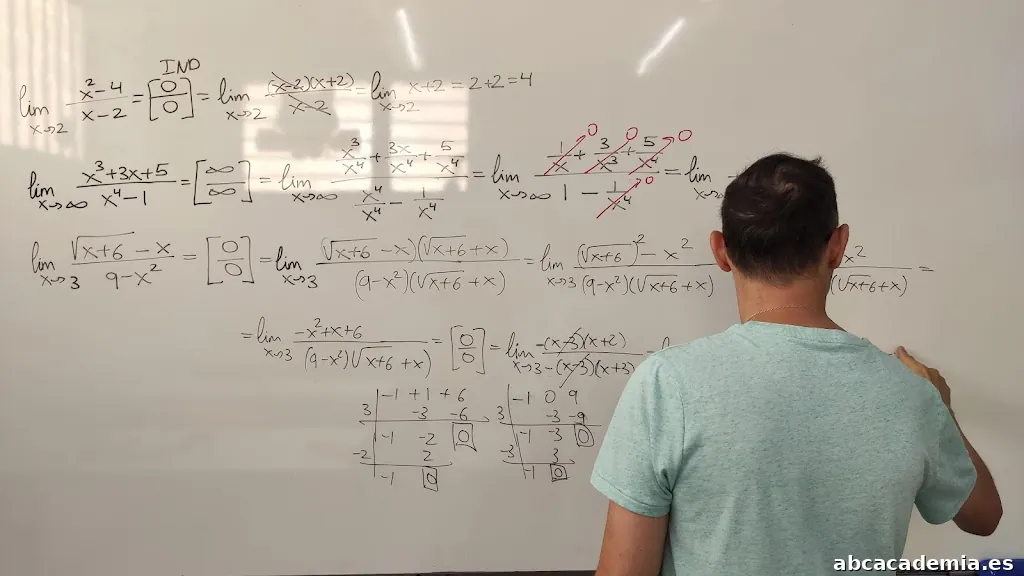 IND
lim x→2 x²-4 / x-2 = [0/0] = lim x→2 (x-2)(x+2) / x-2 = lim x→2 x+2 = 2+2 = 4
lim x→∞ x³+3x+5 / x⁴-1 = [∞/∞] = lim x→∞ x³/x⁴ + 3x/x⁴ + 5/x⁴ / x⁴/x⁴ - 1/x⁴ = lim x→∞ 1/x 0 + 3/x³ 0 + 5/x⁴ 0 / 1 - 1/x⁴ 0 = lim x→∞
lim x→3 √x+6 - x / 9-x² = [0/0] = lim x→3 (√x+6 - x)(√x+6 + x) / (9-x²)(√x+6 + x) = lim x→3 (√x+6)² - x² / (9-x²)(√x+6 + x) x² / (√x+6 + x) =
= lim x→3 -x²+x+6 / (9-x²)(√x+6 + x) = [0/0] = lim x→3 -(x-3)(x+2) / -(x-3)(x+3)
-1 +1 +6
3 -3 -6
-1 -2 0
-2 2
-1 0
-1 0 9
3 -3 -9
-1 -3 0
-3 3
-1 0
abcacademia.es